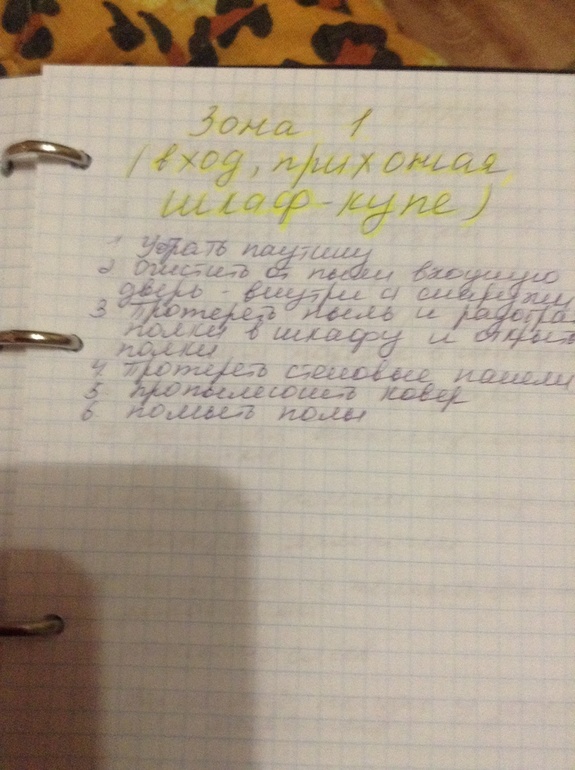 Зона 1
(вход, прихожая,
шкаф-купе)
1 Убрать паутину
2 очистить от пыли входную
дверь - внутри и снаружи
3 Протереть пыль и разобра
полки в шкафу и открыт
полки
4 Протереть стеновые панели
5 пропылесосить ковер
6 помыть полы